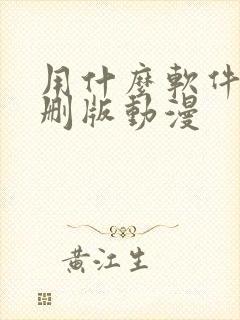 用什麼軟件
刪版動漫
黃江生